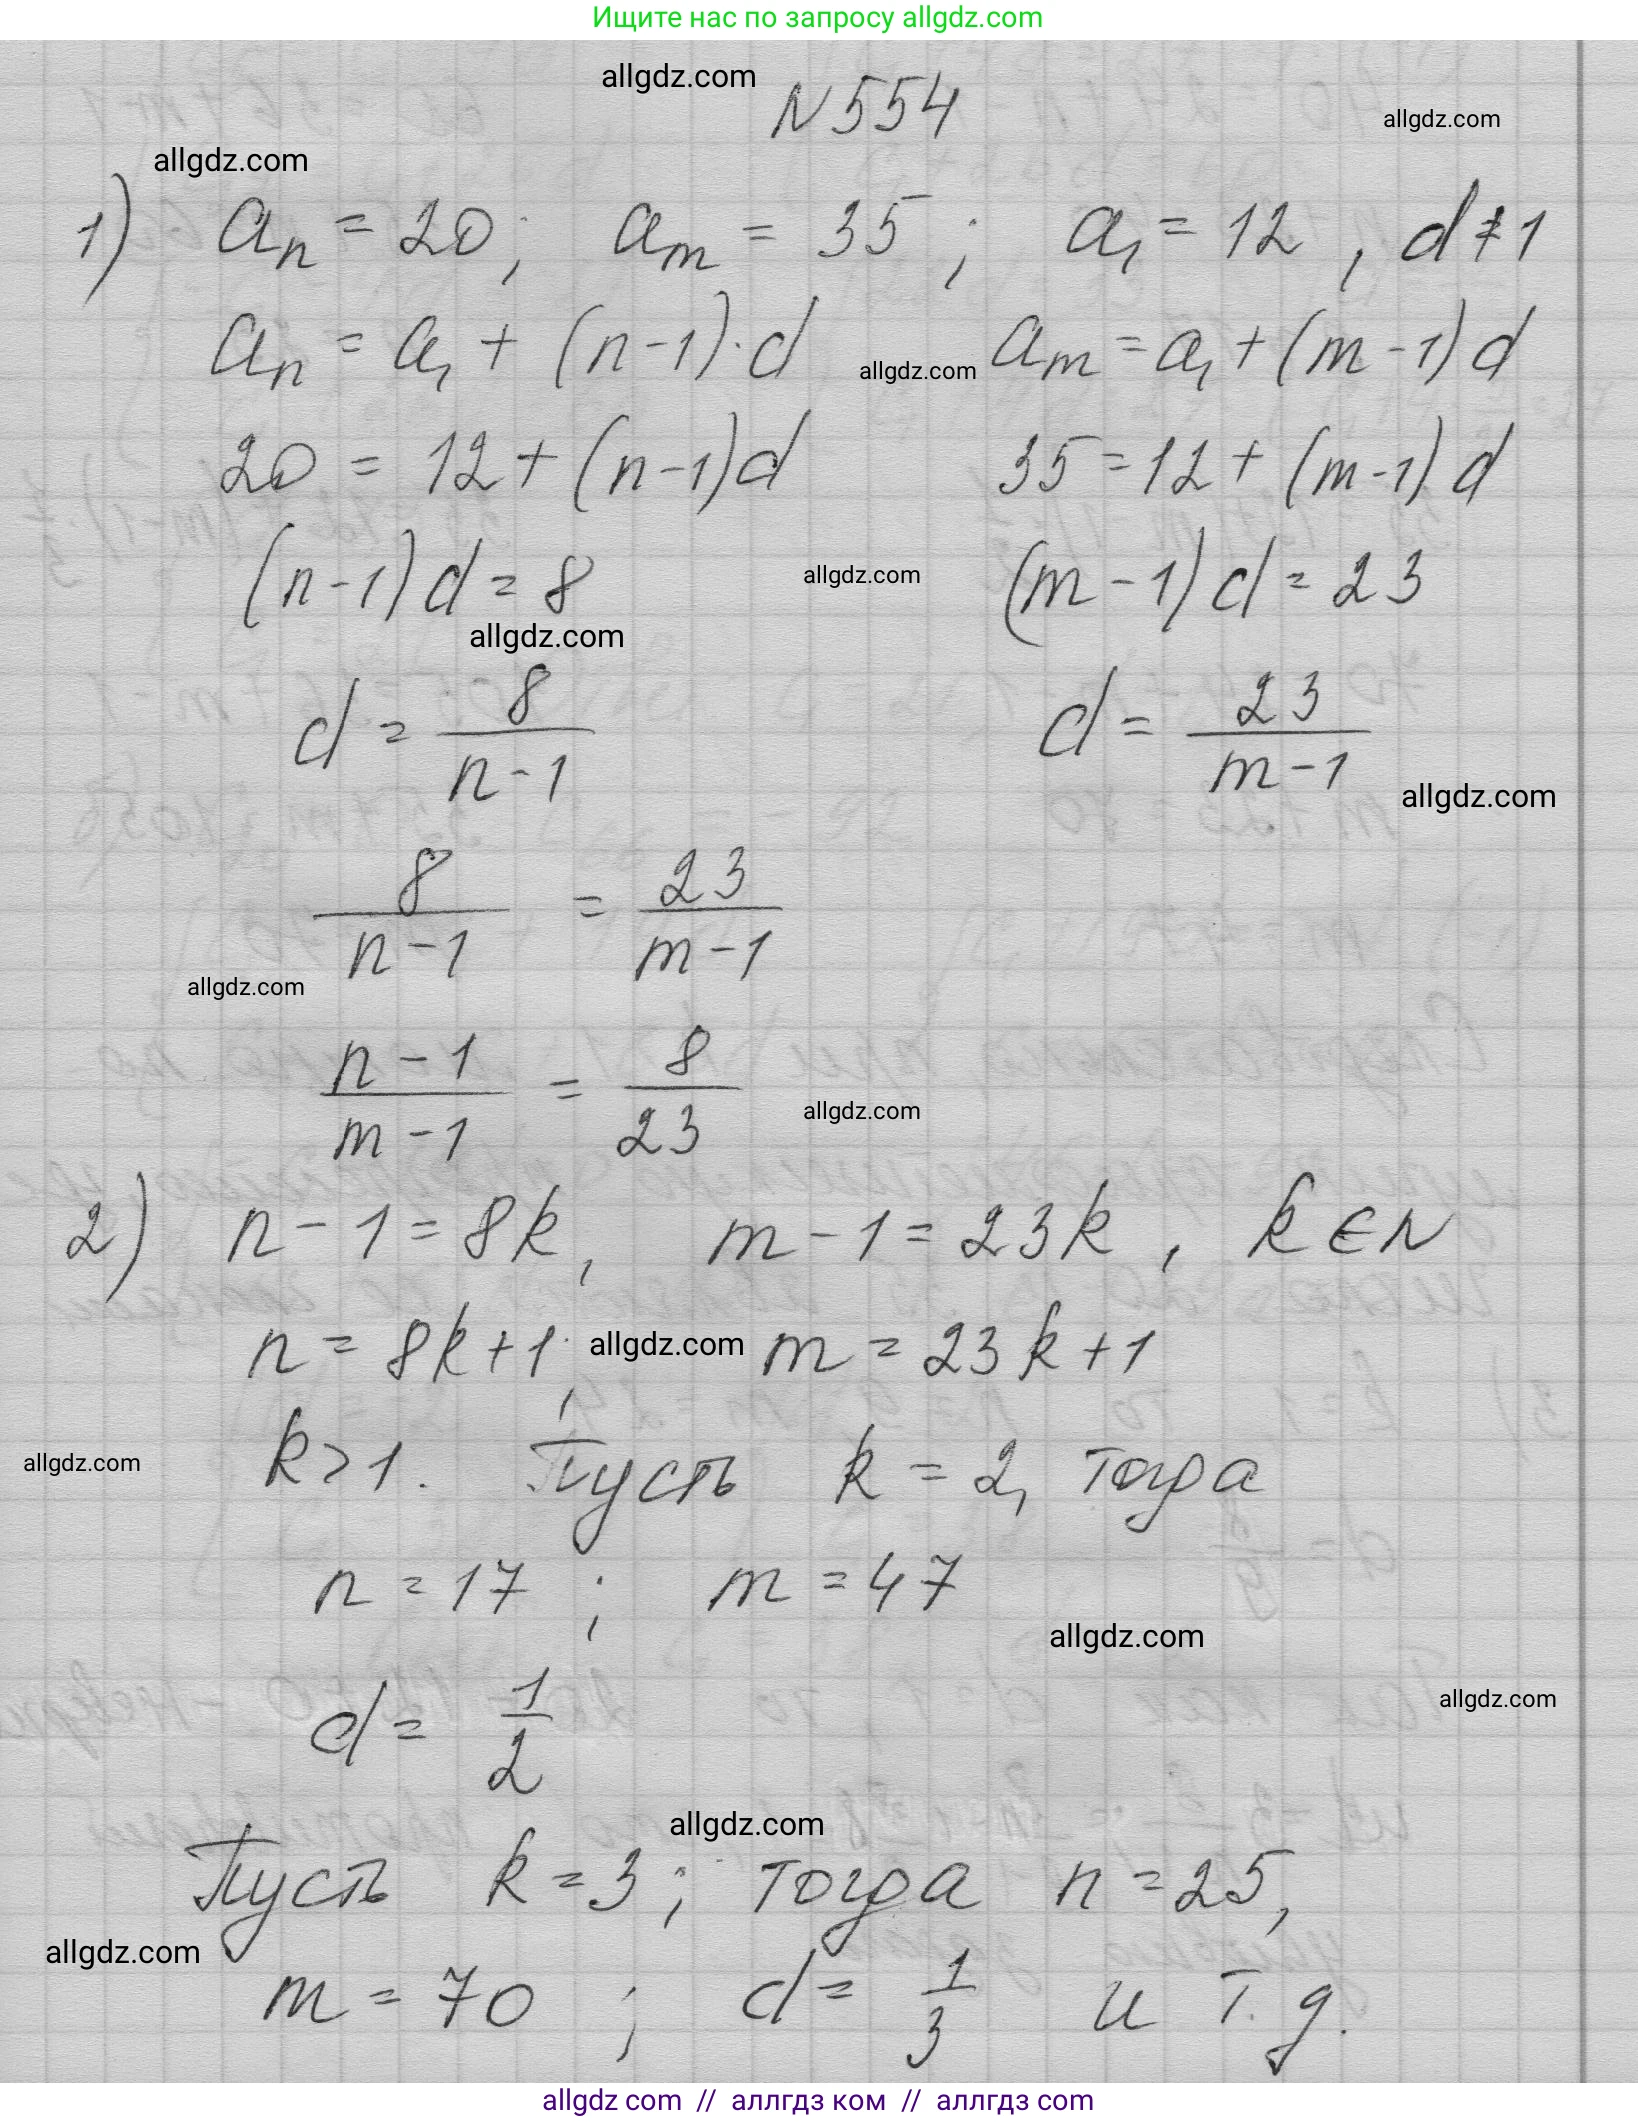 Ищите нас по запросу allgdz.com
allgdz.com
N554
allgdz.com
allgdz.com
1) aₙ = 20; aₘ = 35; a₁ = 12, d ≠ 1
aₙ = a₁ + (n-1)·d aₘ = a₁ + (m-1)d
allgdz.com
20 = 12 + (n-1)d 35 = 12 + (m-1)d
(n-1)d = 8 allgdz.com (m-1)d = 23
allgdz.com
d = 8/(n-1) d = 23/(m-1)
allgdz.com
8/(n-1) = 23/(m-1)
allgdz.com
(n-1)/(m-1) = 8/23
allgdz.com
2) n-1 = 8k, m-1 = 23k, k ∈ N
n = 8k+1, allgdz.com m = 23k+1
allgdz.com
k > 1. Пусть k = 2, тогда
n = 17; m = 47
allgdz.com
allgdz.com
d = 1/2
allgdz.com
Пусть k = 3; тогда n = 25,
allgdz.com
m = 70; d = 1/3 и т.д.
allgdz.com // аллгдз ком // аллгдз com